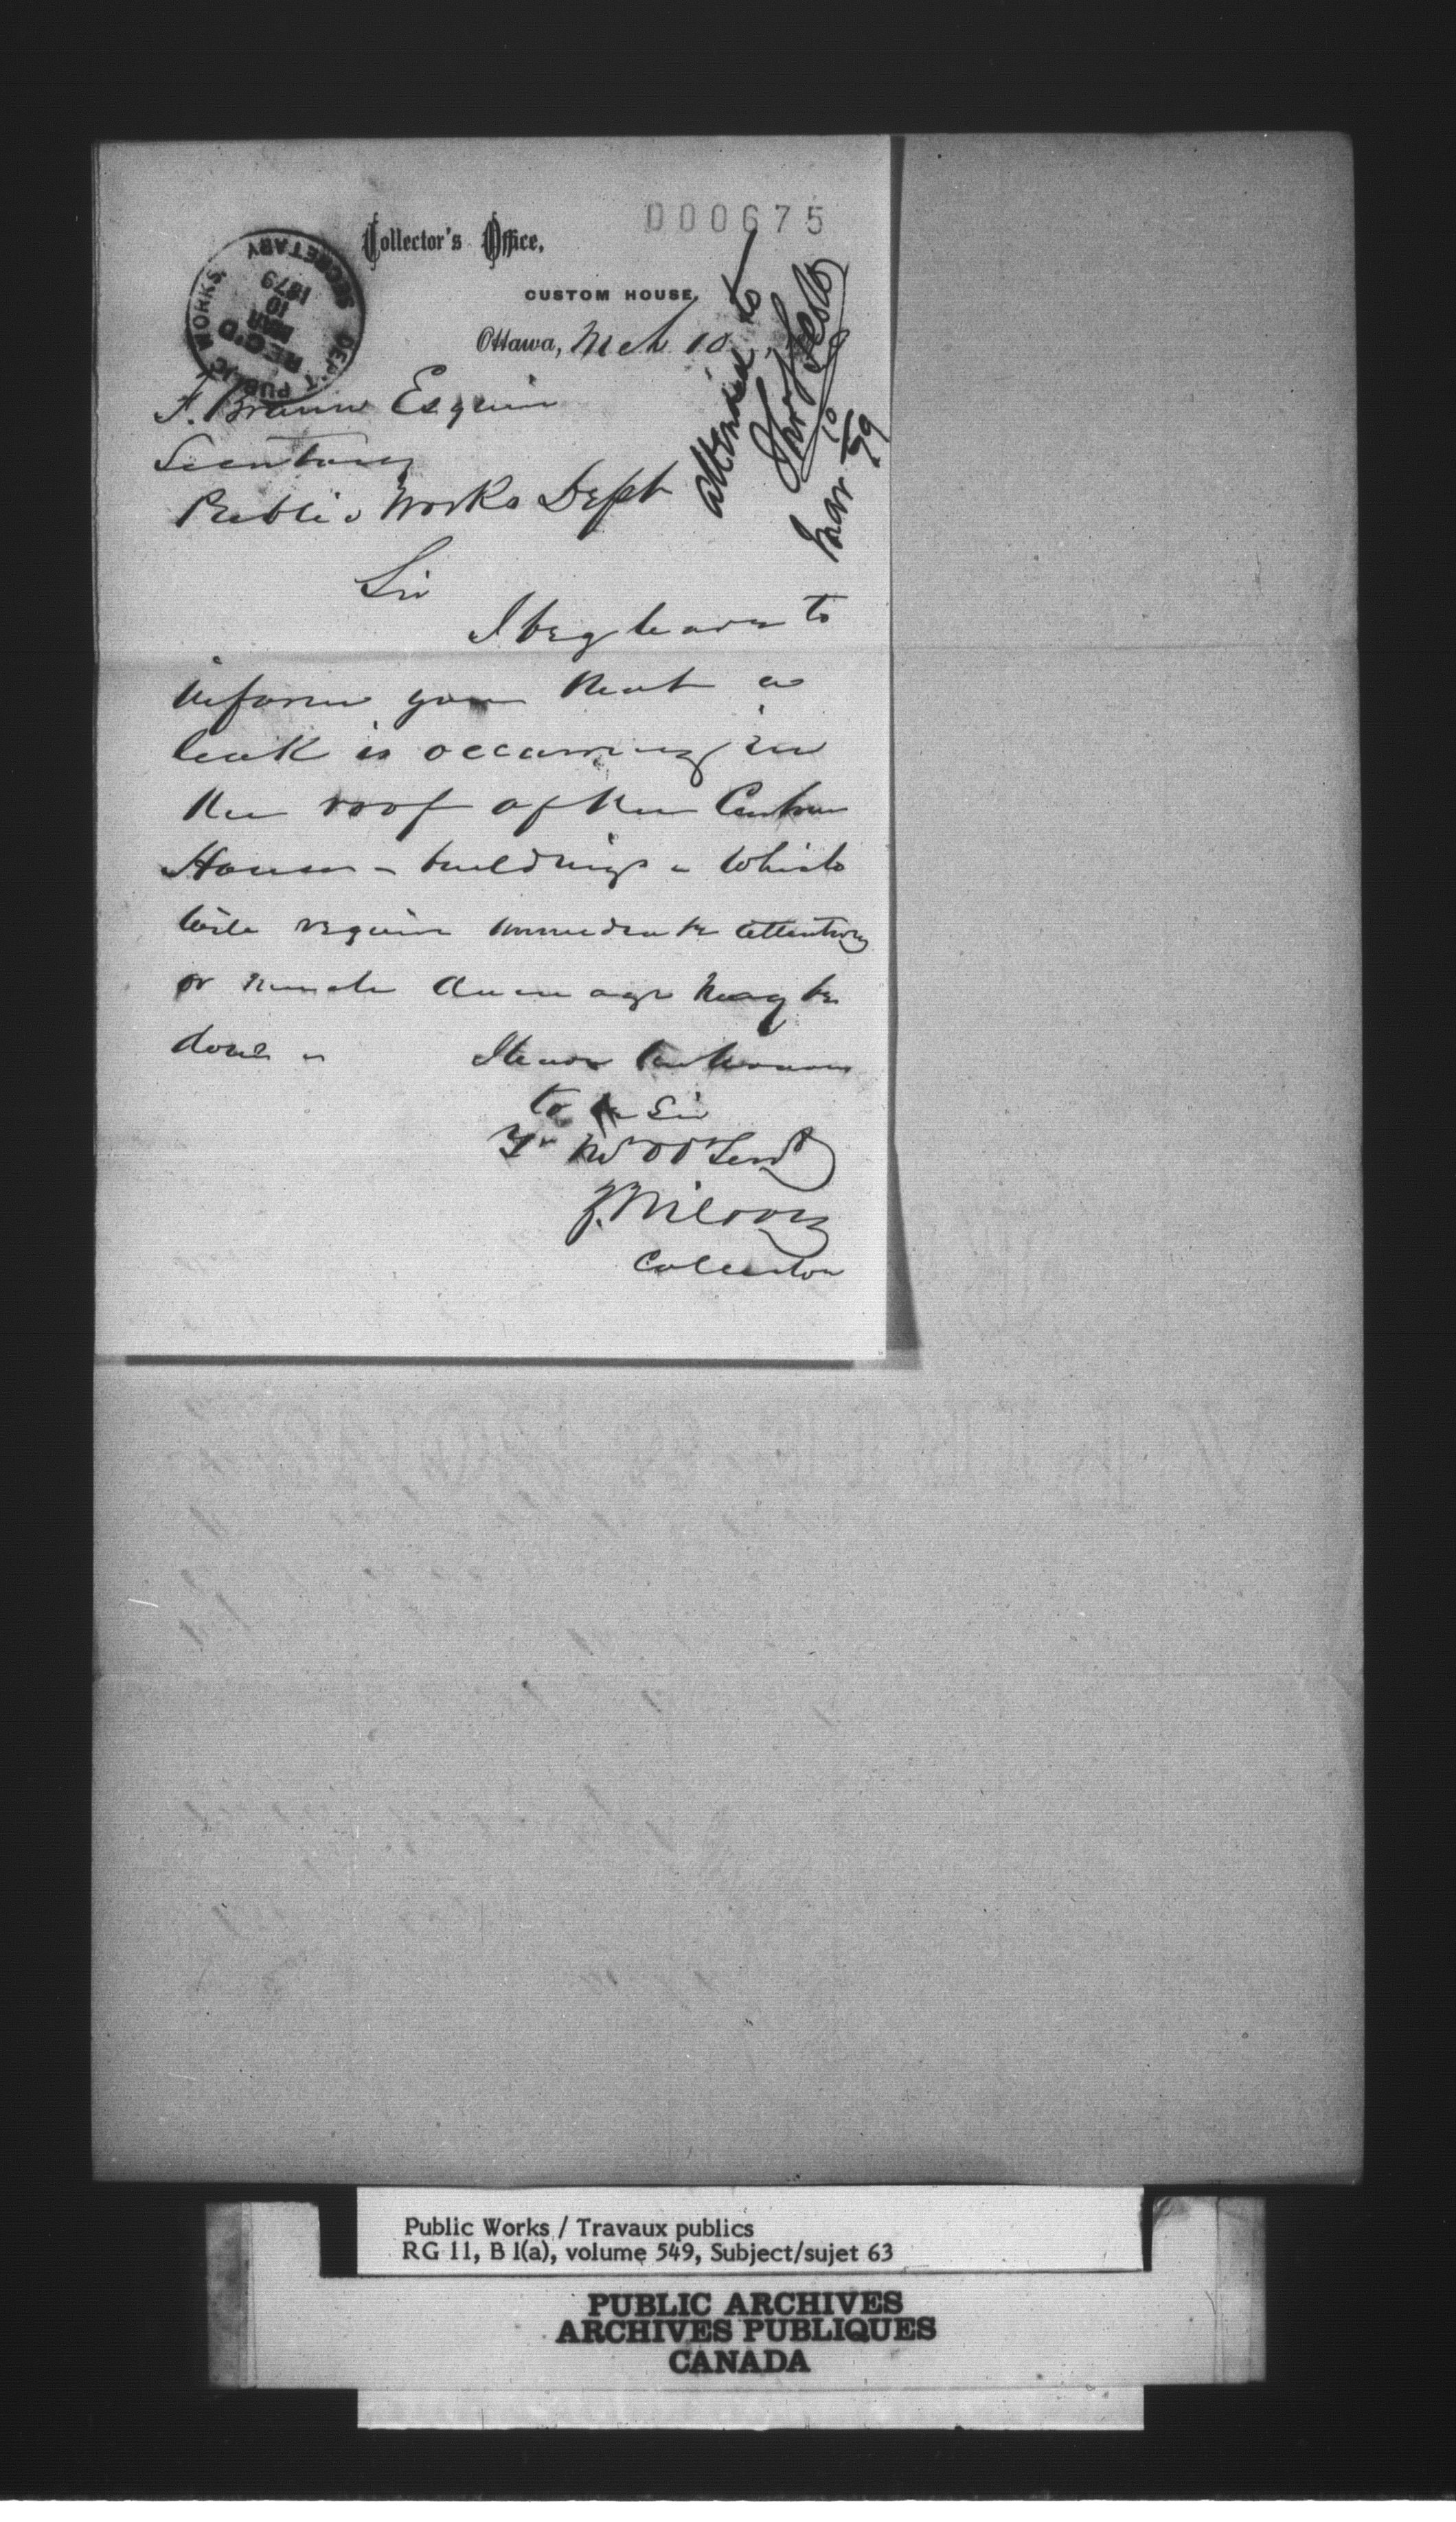 000675
Collector's Office,
CUSTOM HOUSE,
Ottawa, Mch 10
DEP'T PUBLIC WORKS
REG'D
MAR
10
1879
SECRETARY
attended to
Mar 10 79
F. Braun Esquire
Secretary
Public Works Dept
Sir
I beg leave to
inform you that a
leak is occurring in
the roof of the Custom
House - buildings - which
will require immediate attention
or much damage may be
done -
I have the honour
to be Sir
Yr
Collector
Public Works / Travaux publics
RG 11, B 1(a), volume 549, Subject/sujet 63
PUBLIC ARCHIVES
ARCHIVES PUBLIQUES
CANADA